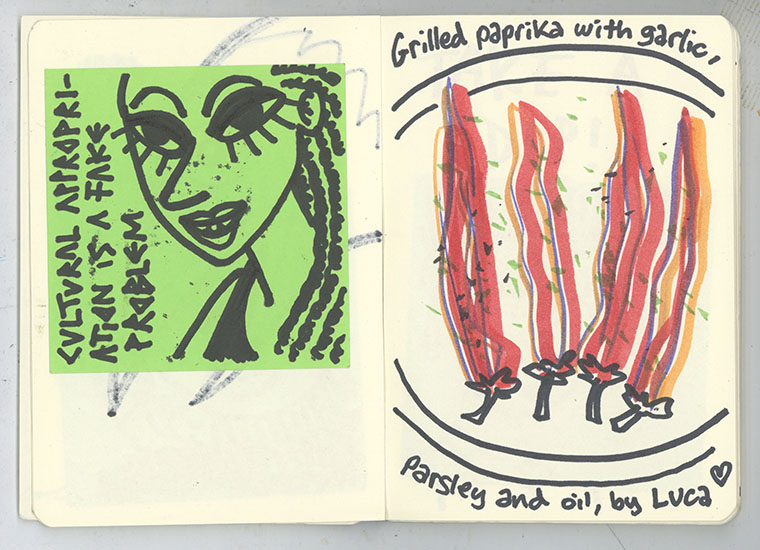 CULTURAL APPROPRI-
ATION IS A FAKE
PROBLEM
Grilled paprika with garlic,
Parsley and oil, by LUCA